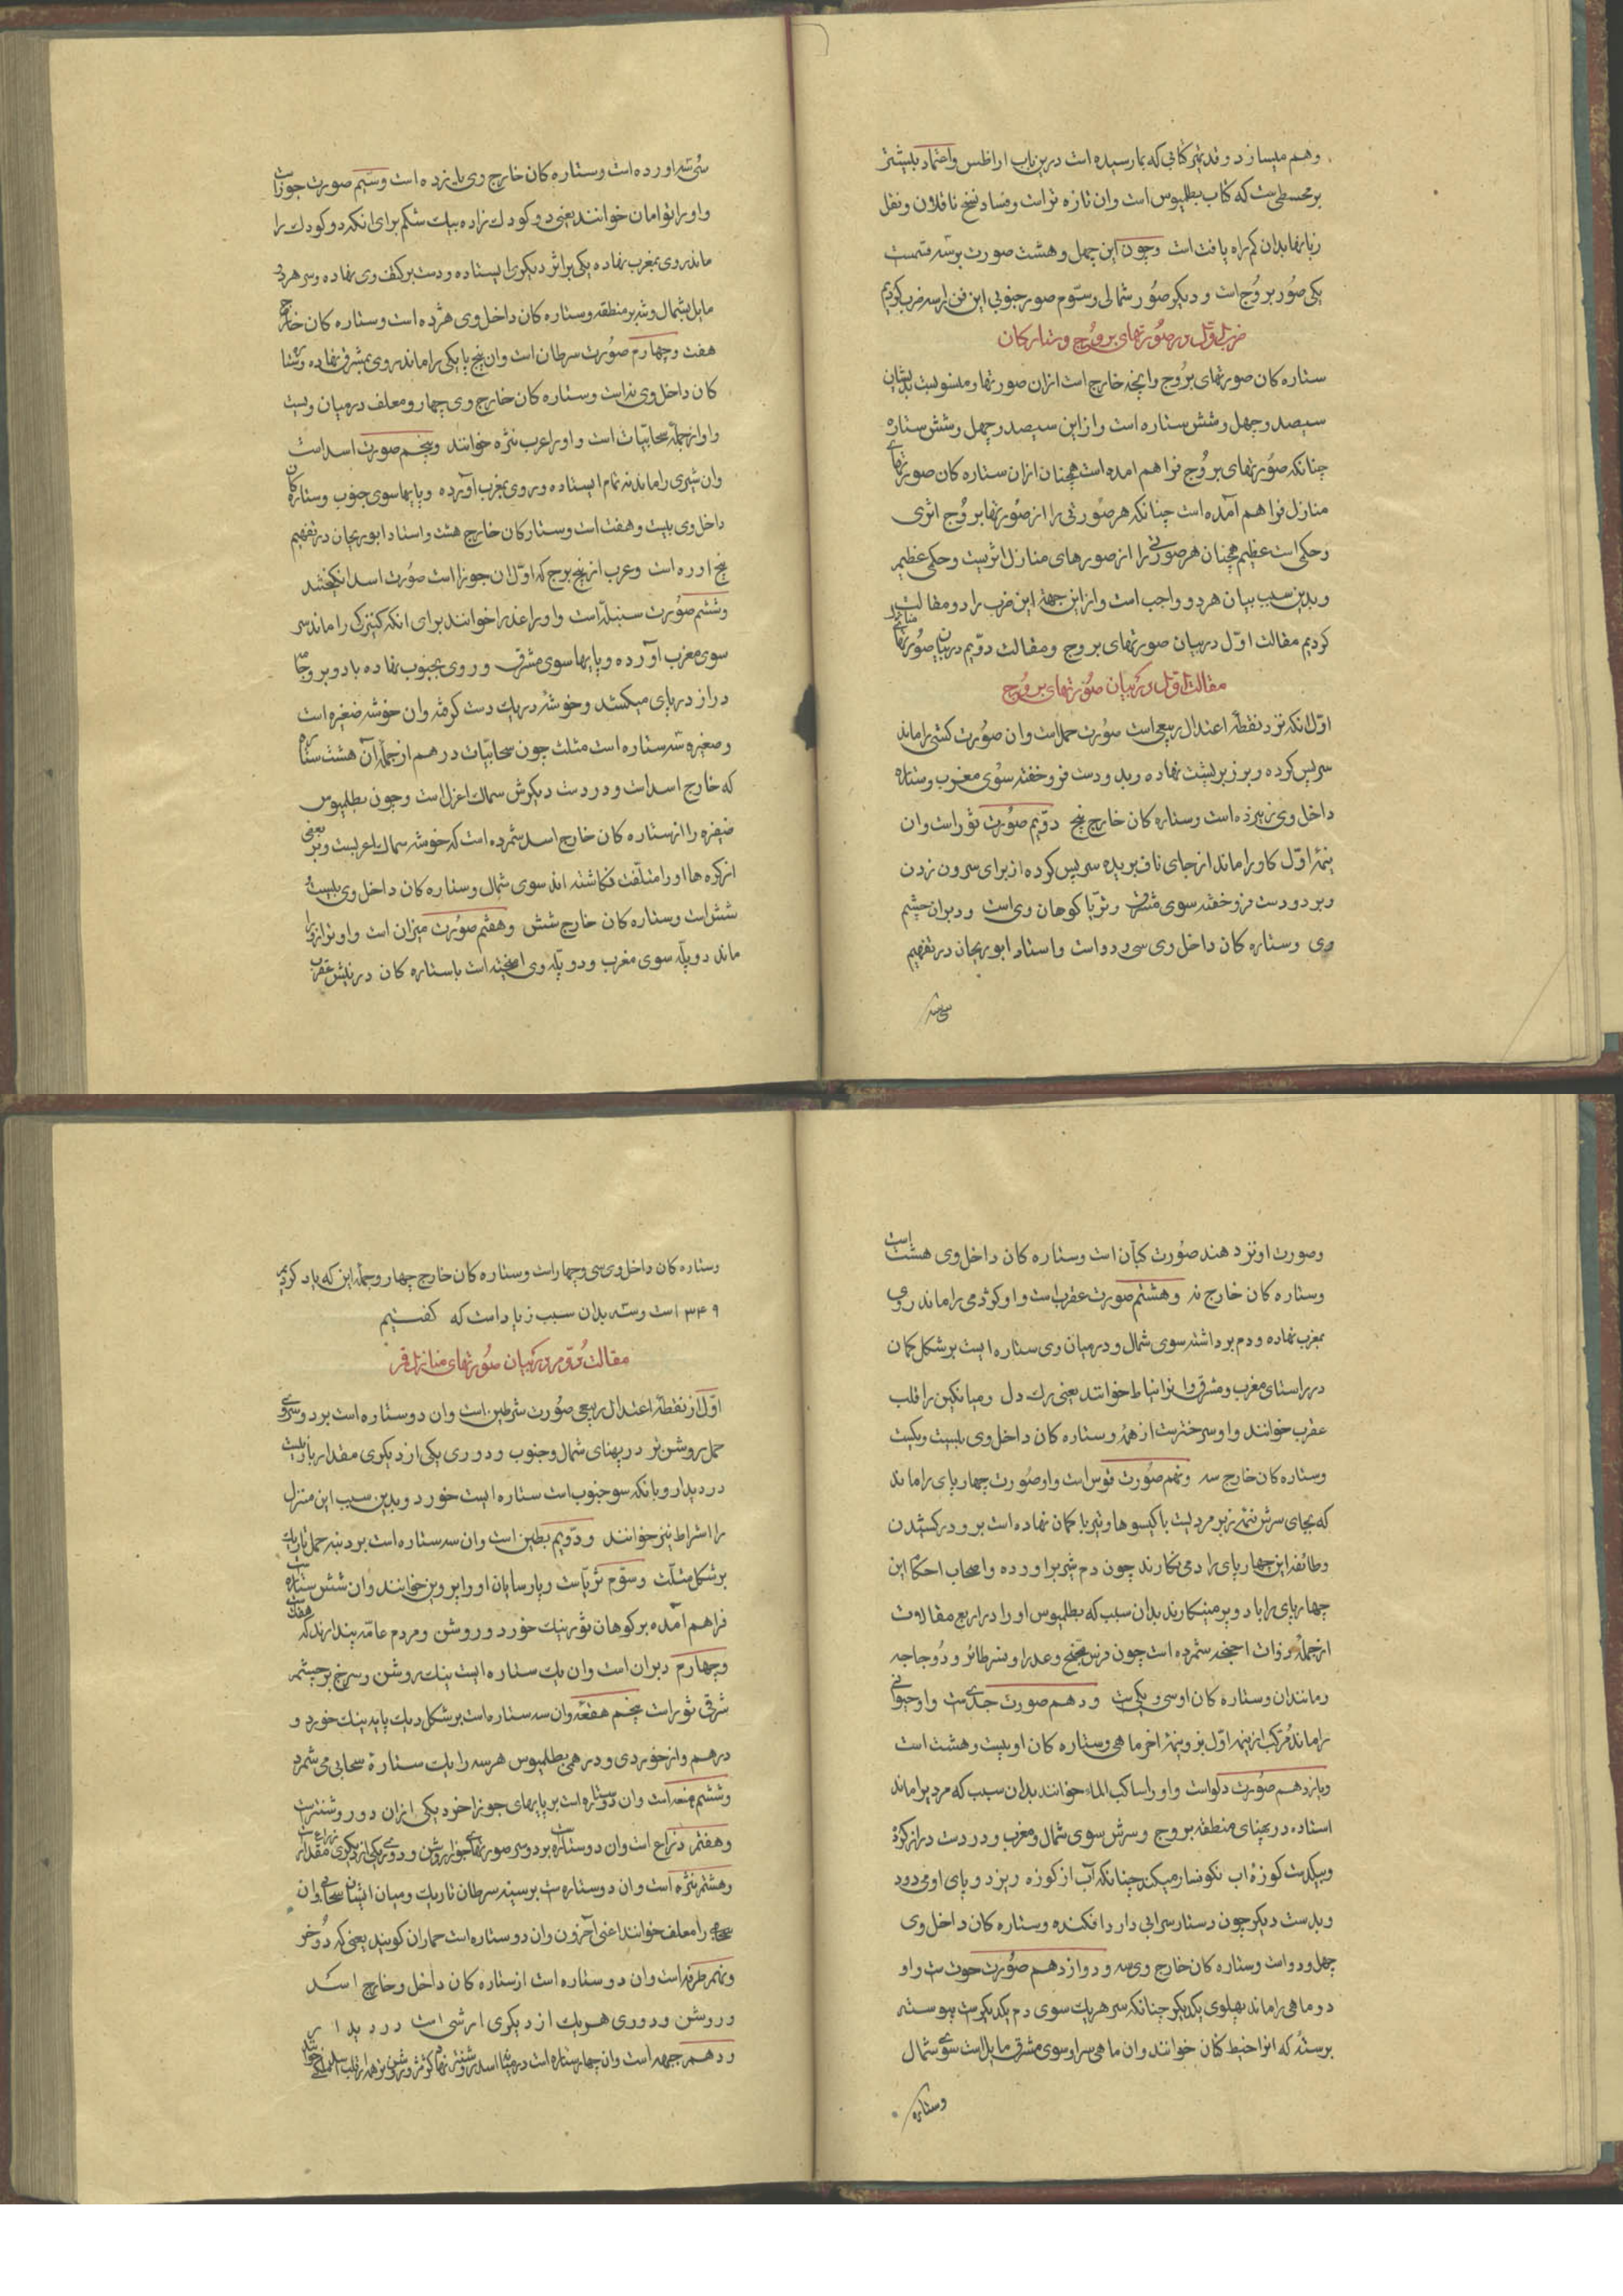 وهم میسازد و قدیمتر کتابی که بما رسیده است درین باب اراطس واعتماد بیشتر
بر مجسطی است که کتاب بطلمیوس است وان تازه تر است و فساد نسخ ناقلان و نقل
زبانها بدان کم راه یافت است وچون این چهل و هشت صورت بر سه قسمست
یکی صور بروج است و دیکر صور شمالی وسوم صور جنوبی این فن را سه ضرب کردیم
ضرب اوّل در صورتهای بروج و ستارکان
ستاره کان صورتهای بروج وانچه خارج است ازان صورتها و منسوبست بدیشان
سیصد و چهل و شش ستاره است و از این سیصد و چهل و شش ستاره
چنانکه صورتهای بروج فراهم امده است همچنان ازان ستاره کان صورتهای
منازل فراهم آمده است چنانکه هر صورتی را از صورتها بروج اثری
وحکمی است عظیم همچنان هر صورتی را از صورهای منازل اثریست وحکمی عظیم
وبدین سبب بیان هر دو واجب است و از این جهة این ضرب را دو مقالت
کردیم مقالت اوّل در بیان صورتهای بروج ومقالت دوّیم در بیان صورتهای منازل
مقالت اوّل در بیان صورتهای بروج
اوّل انکه نزد نقطهٔ اعتدال ربیعی است صورت حمل است وان صورت کبشی را ماند
سر پس کرده و بر زبر پشت نهاده وبدو دست فرو خفته سوی مغرب وستاره
داخل وی سیزده است وستاره کان خارج پنج دوّیم صورت ثور است وان
نیمهٔ اوّل کاو را ماند از جای ناف بریده سر پس کرده از برای سرون زدن
وبر دو دست فرو خفته سوی مشرق وثریّا کوهان وی است ودبران چشم
وی وستاره کان داخل وی سی ودو است واستاد ابوریحان در تفهیم
سی سه
سی سه اورده است وستاره کان خارج وی یازده است وسیّم صورت جوزاست
واو را توامان خوانند یعنی دو کودك زاده بیك شکم برای انکه دو کودك را
ماند روی بمغرب نهاده یکی بر اثر دیکری ایستاده ودست بر کتف وی نهاده وسر هر دو
مایل بشمال وتنه بر منطقه وستاره کان داخل وی هژده است وستاره کان خارج
هفت وچهارم صورت سرطان است وان پنج پایکی را ماند روی بمشرق نهاده وستاره
کان داخل وی نه است وستاره کان خارج وی چهار ومعلف در میان ویست
واو از جملهٔ سحابیّات است واو را عرب نثره خوانند وپنجم صورت اسد است
وان شیری را ماند نه تمام ایستاده وروی بمغرب آورده وپایها سوی جنوب وستاره کان
داخل وی بیست وهفت است وستارکان خارج هشت واستاد ابوریحان در تفهیم
پنج اورده است وعرب از پنج برج که اوّل ان جوزا است صورت اسد انکیخته‌اند
وششم صورت سنبله است واو را عذرا خوانند برای انکه کنیزکی را ماند سر
سوی مغرب آورده وپایها سوی مشرق وروی بجنوب نهاده با دو پر وجامه
دراز در پای میکشد وخوشه در یك دست کرفته وان خوشه ضفیره است
وضفیره سه ستاره است مثلث چون سحابیّات درهم از جملهٔ آن هشت ستاره
که خارج اسد است و در دست دیکرش سماك اعزل است وچون بطلمیوس
ضفیره را از ستاره کان خارج اسد شمرده است که خوشه سماك اعزلست وبر بعضی
از کره ها او را متلفت نکاشته اند سوی شمال وستاره کان داخل وی بیست و
شش است وستاره کان خارج شش وهفتم صورت میزان است واو ترازو را
ماند دو پله سوی مغرب ودو پله وی امیخته است با ستاره کان در نیش عقرب
وصورت او نزد هند صورت کیان است وستاره کان داخل وی هشت است
وستاره کان خارج نه وهشتم صورت عقرب است واو کژدمی را ماند روی
بمغرب نهاده ودم برداشته سوی شمال ودر میان وی ستاره ایست بر شکل کمان
در راستای مغرب ومشرق وانرا نیاط خوانند یعنی رك دل ومیانکین را قلب
عقرب خوانند واو سرختریست از همهٔ وستاره کان داخل وی بیست ویکیست
وستاره کان خارج سه ونهم صورت قوس است واو صورت چهار پای را ماند
که بجای سرش نیمهٔ زبر مردیست با کیسوها وتیر با کمان نهاده است برو در کشیدن
وطائفه این چهار پای را دمی نکارند چون دم شیر براورده واصحاب احکام این
چهار پای را با دو پر مینکارند بدان سبب که بطلمیوس او را در اربع مقالات
از جملهٔ ذوات اجنحه شمرده است چون فرس مجنح وعذرا ونسر طائر ودجاجه
ومانند ان وستاره کان او سی ویکست ودهم صورت جدیست واو حیوانی
را ماند مرکب از نیمهٔ اوّل بز ونیمهٔ اخر ماهی وستاره کان او بیست وهشت است
ویازدهم صورت دلو است واو را ساکب الماء خوانند بدان سبب که مردیرا ماند
استاده در پهنای منطقهٔ بروج وسرش سوی شمال ومغرب ودو دست دراز کرده
وبیکدست کوزهٔ اب نکونسار میکند چنانکه آب از کوزه ریزد و پای او می دود
وبدست دیکر چون دستار سرابی دارد افکنده وستاره کان داخل وی
چهل ودو است وستاره کان خارج وی سه ودوازدهم صورت حوت است واو
دو ماهی را ماند پهلوی یکدیکر چنانکه سر هر یك سوی دم یکدیکرست پیوسته
برسته که انرا خیط کتان خوانند وان ماهی سر او سوی مشرق مایل است سوی شمال
وستاره
وستاره کان داخل وی سی وچهار است وستاره کان خارج چهار وجملهٔ این که یاد کردیم
۳۴۹ است وسه بدان سبب زیاد است که کفتیم
مقالت دوّم در بیان صورتهای منازل قمر
اوّل از نقطهٔ اعتدال ربیعی صورت شرطین است وان دو ستاره است بر دو سروی
حمل روشن تر در پهنای شمال وجنوب ودوری یکی از دیکری مقدار بازیست
در دیدار وبانکه سو جنوب است ستاره ایست خورد وبدین سبب این منزل
را اشراط نیز خوانند ودوّیم بطین است وان سه ستاره است بر دنبه حمل تاریك
بر شکل مثلّث وسوّم ثریّاست وپارسایان او را پروین خوانند وان شش ستاره است
فراهم آمده بر کوهان ثور نیك خورد وروشن ومردم عامّه پندارند که هفت است
وچهارم دبران است وان یك ستاره ایست نیك روشن وسرخ بر چشم
شرقی ثور است پنجم هقعه وان سه ستاره است بر شکل دیك پایه نیك خورد و
درهم واز خوردی ودرهمی بطلمیوس هر سه را یك ستارهٔ سحابی می شمرد
وششم هنعه است وان دو ستاره است بر پایهای جوزا خرد یکی ازان دو روشنتر است
وهفتم ذراع است وان دو ستاره است بر دو سر صورتهای جوزا روشن ودوری یکی از دیکری مقدار ذراع است
وهشتم نثره است وان دو ستاره است بر سینه سرطان تاریك ومیان ایشان سحابی وان
سحابی را معلف خوانند اعنی آخرون وان دو ستاره است حماران کویند یعنی که دو خر
ونهم طرفه است وان دو ستاره است از ستاره کان داخل وخارج اسد
وروشن ودوری هر یك از دیکری ارشی است در دیدار
ودهم جبهه است وان چهار ستاره است